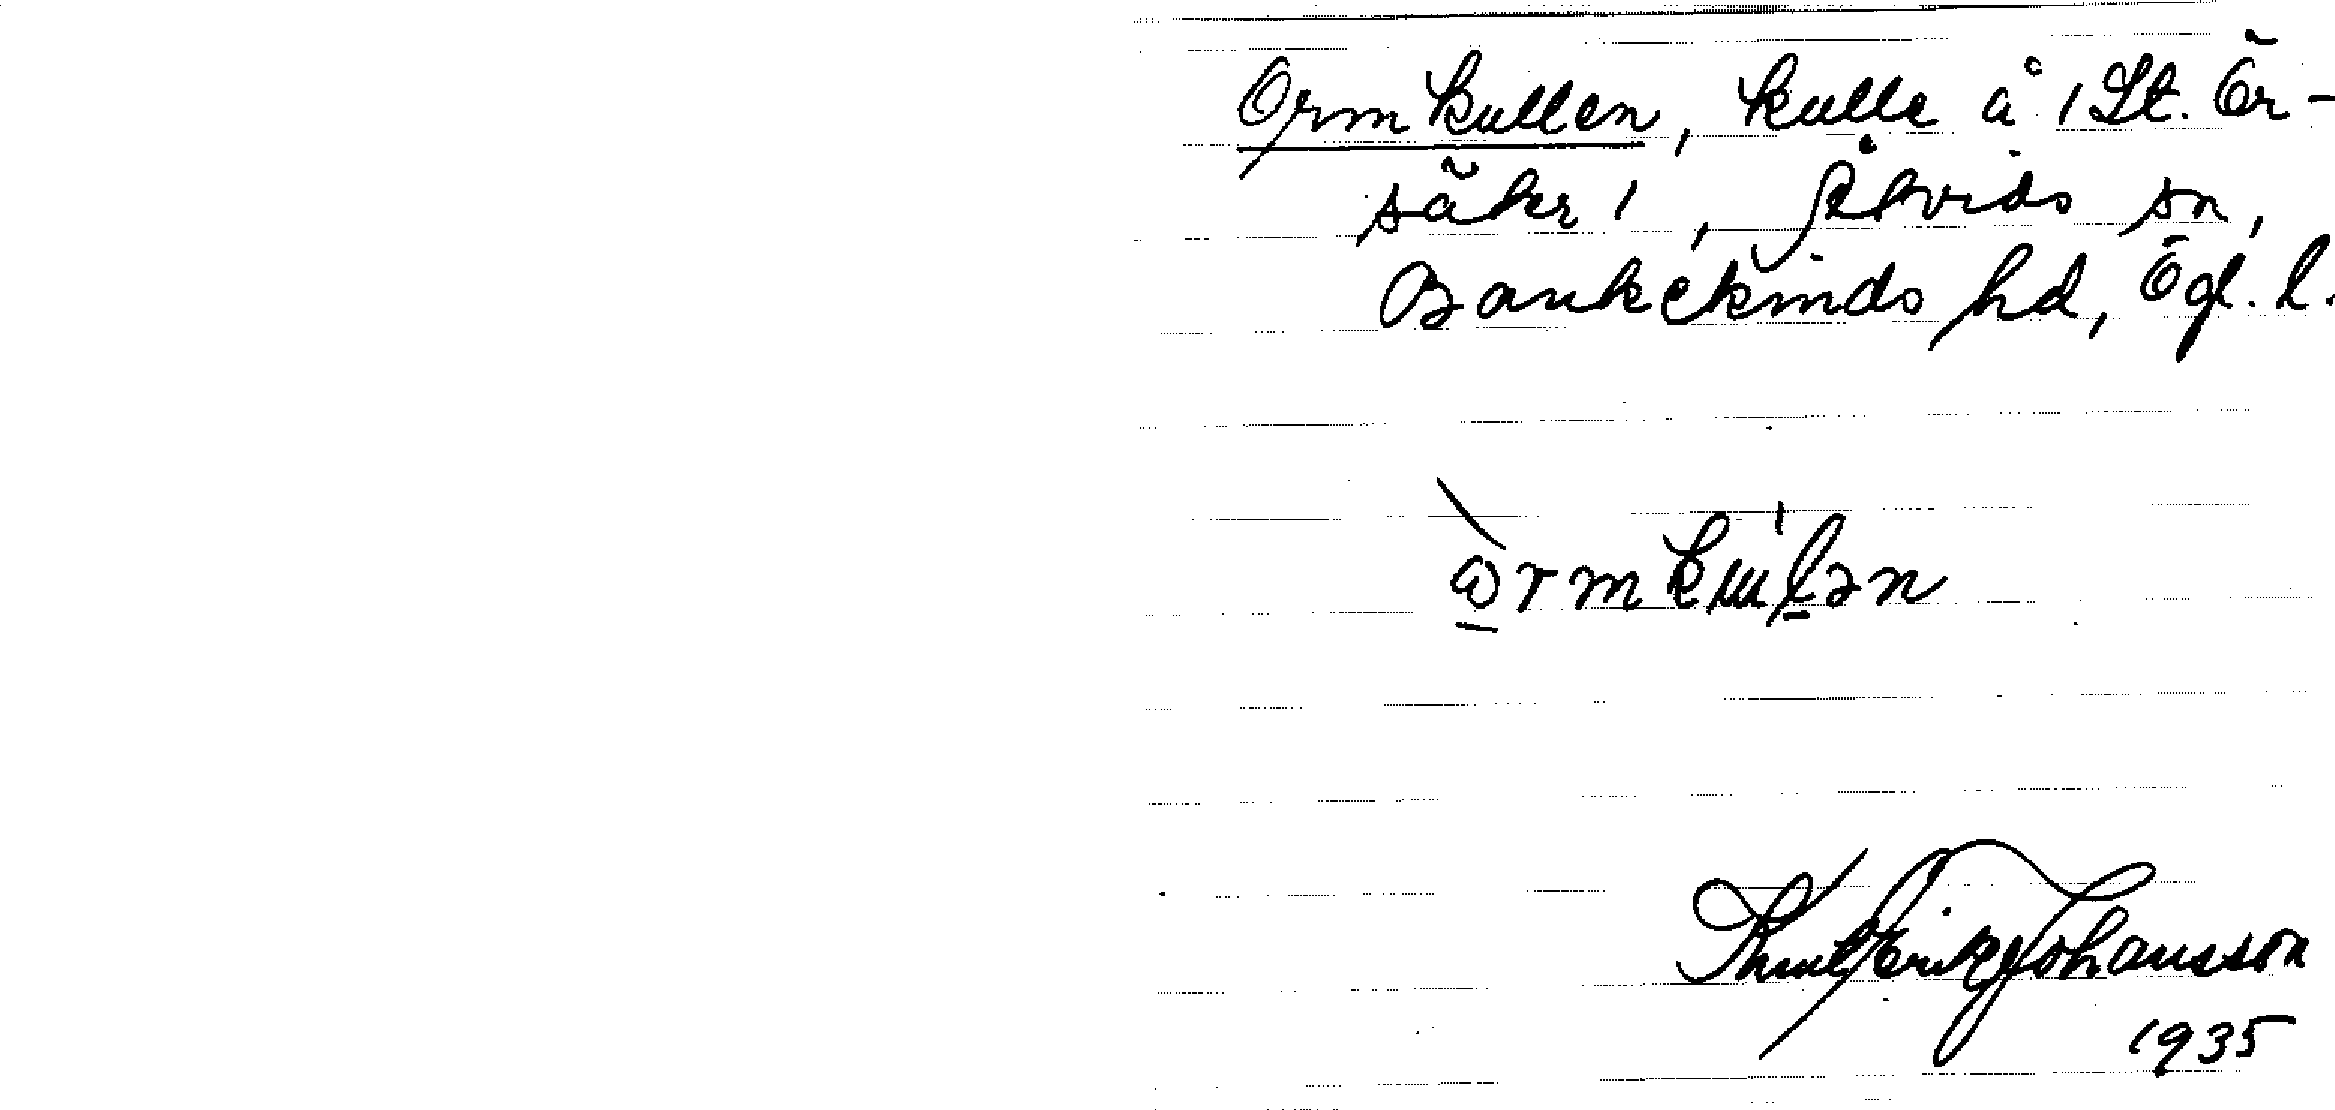 Ormkullen, kulle å 1 St. Ör-
säter 1, Åtvids sn,
Bankekinds hd, Ögl. l.
Knut Erik Johansson
1935